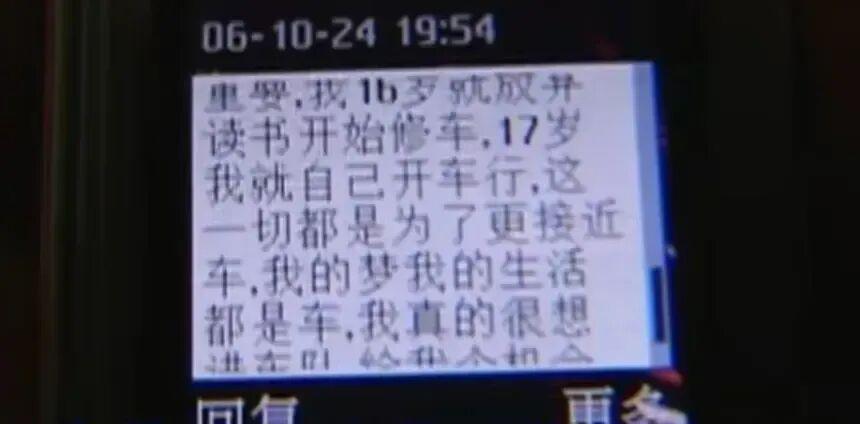 06-10-24 19:54
重要,我16岁就放弃
读书开始修车,17岁
我就自己开车行,这
一切都是为了更接近
车,我的梦我的生活
都是车,我真的很想
进车队,给我个机会
回复
更多